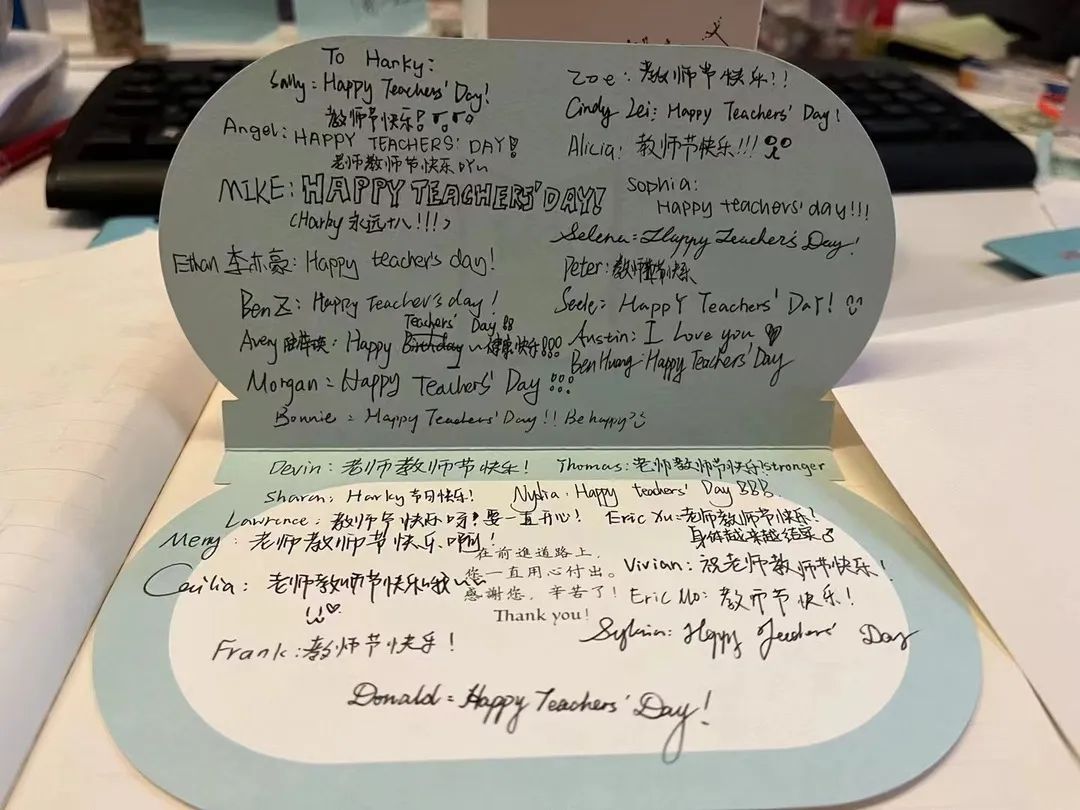 To Harky:
Sally: Happy Teachers' Day!
教师节快乐!
Angel: HAPPY TEACHERS' DAY!
老师教师节快乐吖~
MIKE: HAPPY TEACHERS' DAY!
(Harky 永远十八!!!)
Ethan 李亦豪: Happy teacher's day!
Ben Z: Happy Teacher's day!
Teachers' Day!!
Avery: Happy Birthday ~健康快乐!!!
Morgan: Happy Teachers' Day!!!
Bonnie: Happy Teachers' Day!! Be happy
Zoe: 教师节快乐!!
Cindy Lei: Happy Teachers' Day!
Alicia: 教师节快乐!!!
Sophia:
Happy teachers' day!!!
Selena: Happy Teacher's Day!
Peter: 教师节快乐
Seele: HappY Teachers' DaY!
Austin: I Love you ♥
Ben Huang: Happy Teachers' Day
Devin: 老师教师节快乐!
Thomas: 老师教师节快乐!stronger
Sharon: Harky 节日快乐!
Nydia: Happy teachers' Day!!!
Lawrence: 教师节快乐呀!要一直开心!
Eric Xu: 老师教师节快乐!
身体越来越结实
Meng: 老师教师节快乐啊!
Cecilia: 老师教师节快乐哦~
在前進道路上,
您一直用心付出。
感謝您,辛苦了!
Thank you!
Vivian: 祝老师教师节快乐!
Eric Mo: 教师节快乐!
Frank: 教师节快乐!
Happy Teachers' Day
Donald: Happy Teachers' Day!